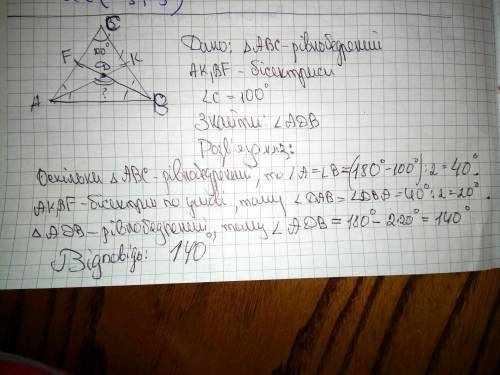 C
100°
F
K
D
?
A
B
Дано: △ABC - рівнобедрений
AK, BF - бісектриси
∠C = 100°
Знайти: ∠ADB
Розв'язання:
Оскільки △ABC - рівнобедрений, то ∠A=∠B=(180°-100°):2=40°.
AK, BF - бісектриси по умові, тому ∠DAB=∠DBA=40°:2=20°.
△ADB - рівнобедрений, тому ∠ADB=180°-2·20°=140°
Відповідь: 140°